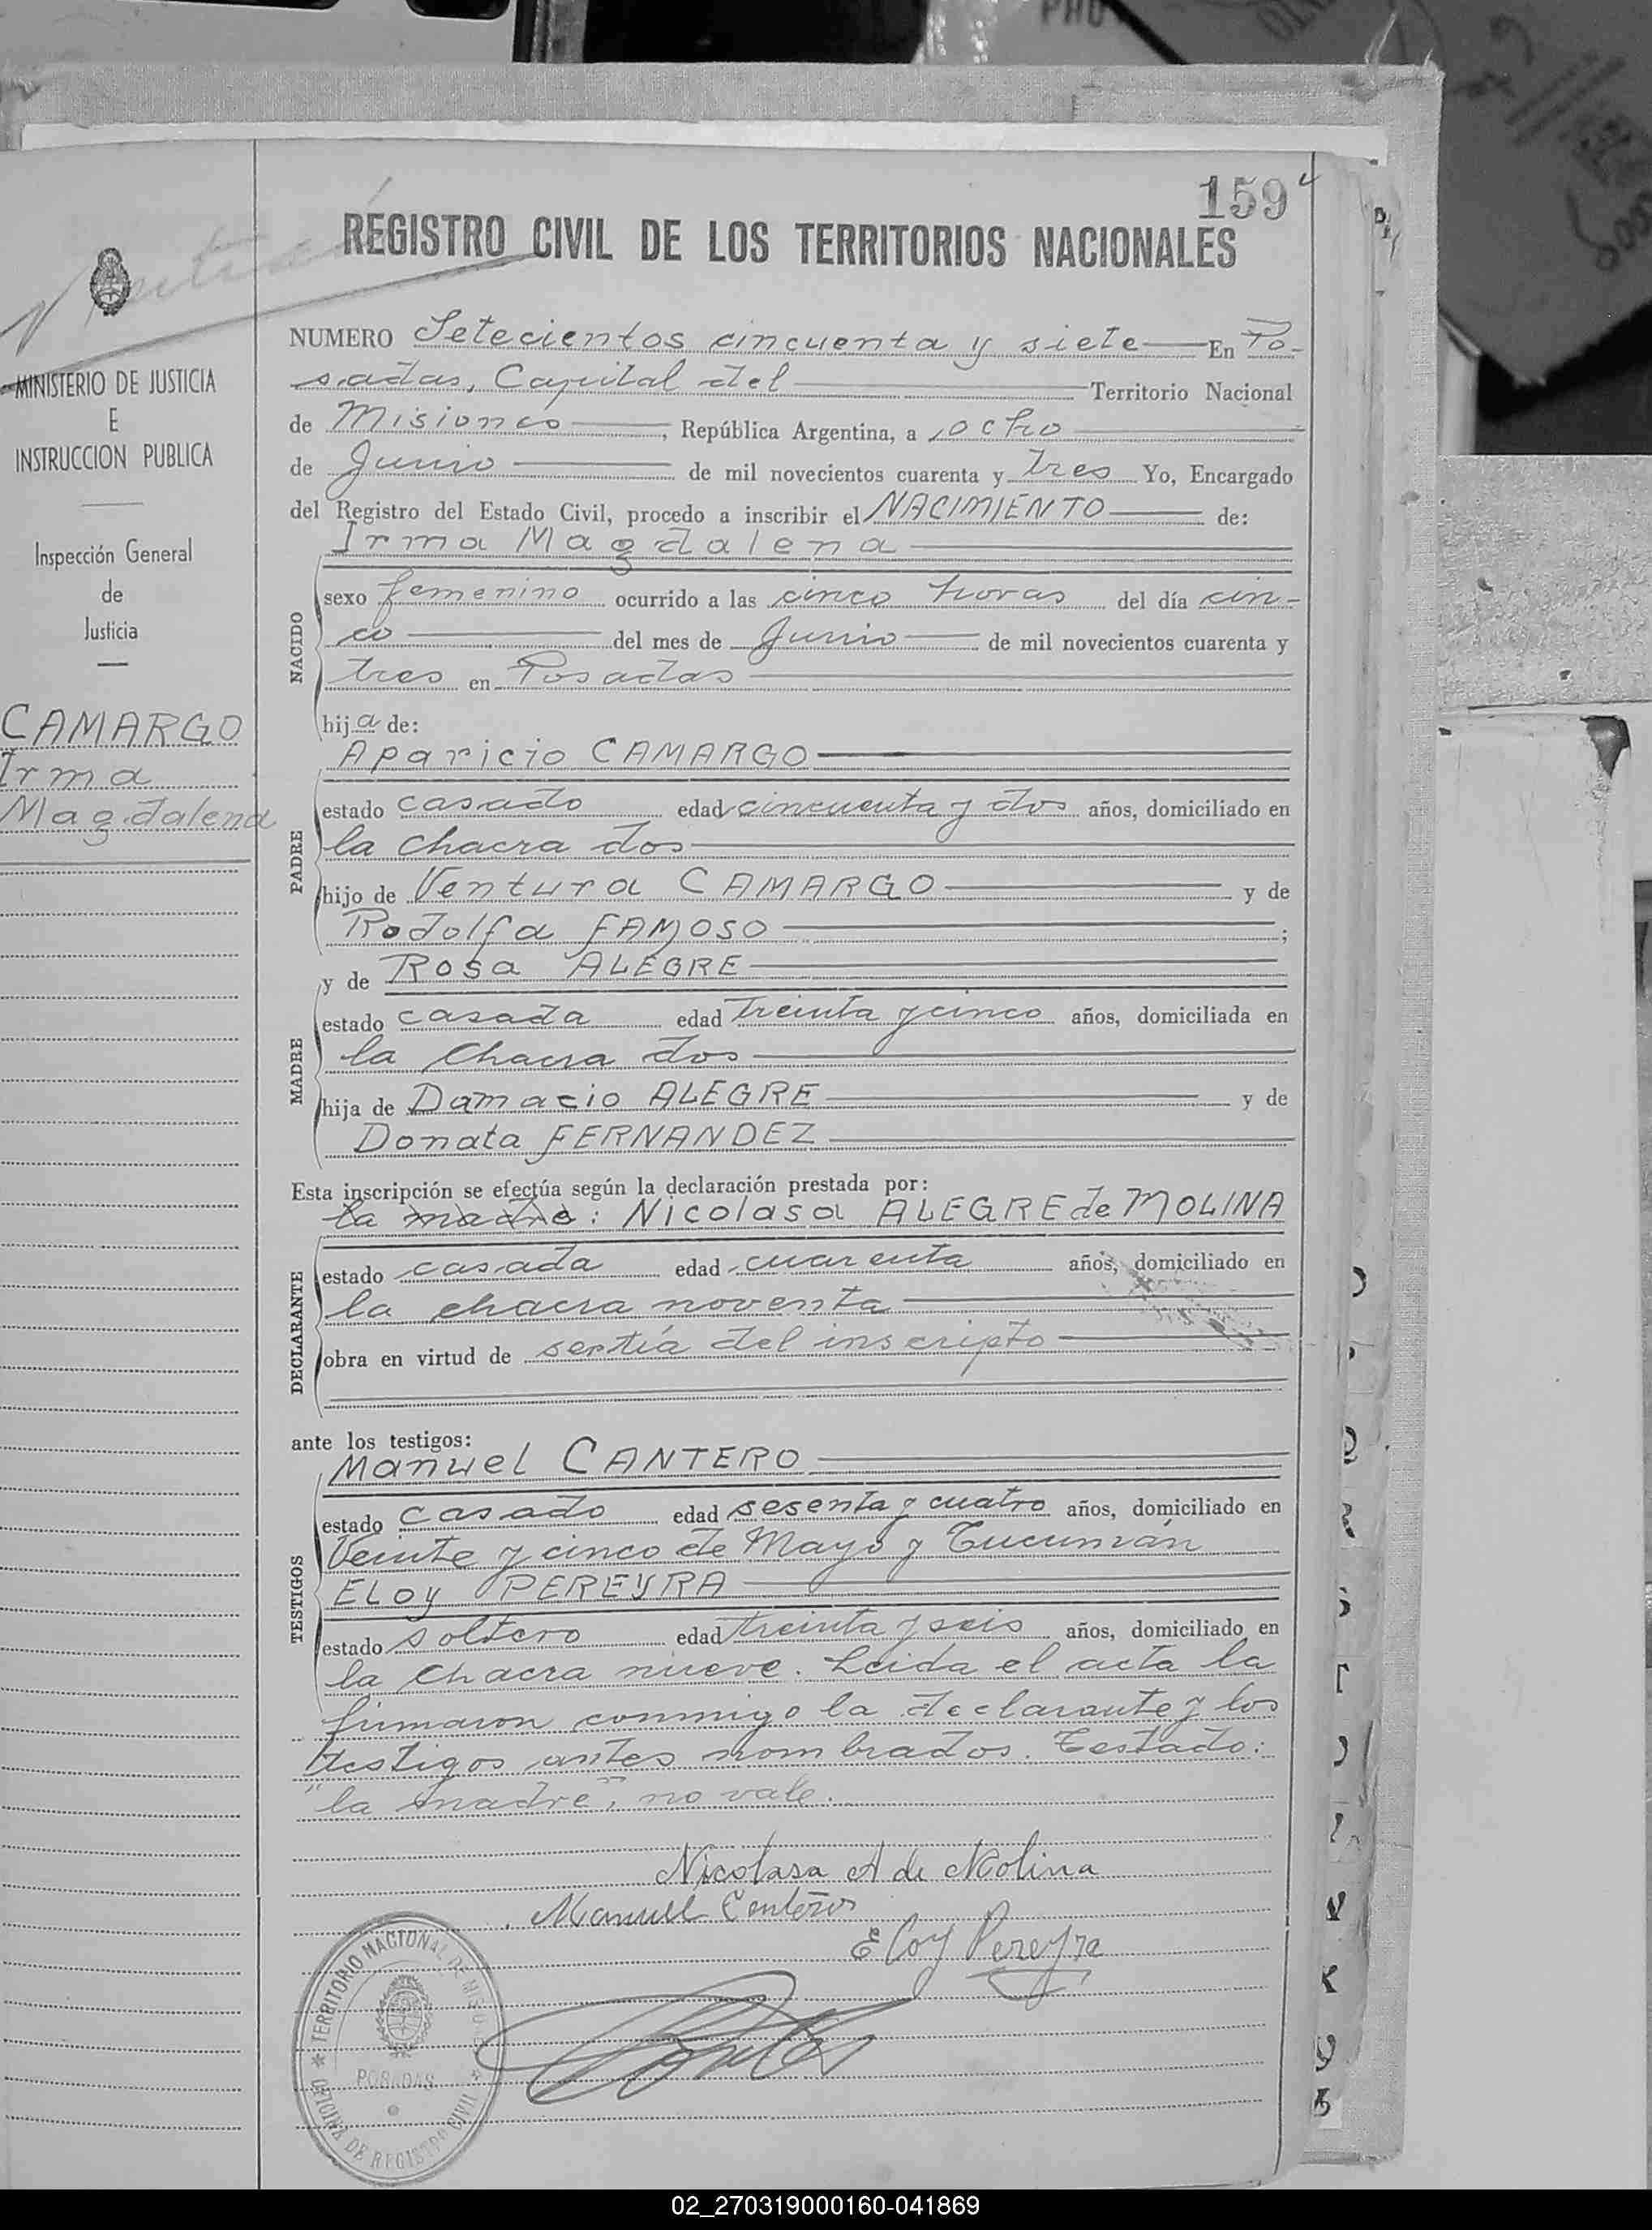 159
REGISTRO CIVIL DE LOS TERRITORIOS NACIONALES
MINISTERIO DE JUSTICIA
E
INSTRUCCION PUBLICA
Inspección General
de
Justicia
CAMARGO
Irma
Magdalena
NUMERO Setecientos cincuenta y siete En Po-
sadas, Capital del Territorio Nacional
de Misiones, República Argentina, a ocho
de Junio de mil novecientos cuarenta y tres Yo, Encargado
del Registro del Estado Civil, procedo a inscribir el NACIMIENTO de:
Irma Magdalena
NACIDO
sexo femenino ocurrido a las cinco horas del día cin-
co del mes de Junio de mil novecientos cuarenta y
tres en Posadas
hija de:
Aparicio CAMARGO
PADRE
estado casado edad cincuenta y dos años, domiciliado en
la chacra dos
hijo de Ventura CAMARGO y de
Rodolfa FAMOSO;
y de Rosa ALEGRE
MADRE
estado casada edad treinta y cinco años, domiciliada en
la chacra dos
hija de Damacio ALEGRE y de
Donata FERNANDEZ
Esta inscripción se efectúa según la declaración prestada por:
la madre: Nicolasa ALEGRE de MOLINA
DECLARANTE
estado casada edad cuarenta años, domiciliado en
la chacra noventa
obra en virtud de ser tía del inscripto
ante los testigos:
Manuel CANTERO
TESTIGOS
estado casado edad sesenta y cuatro años, domiciliado en
Veinte y cinco de Mayo y Tucumán
ELoy PEREYRA
estado soltero edad treinta y seis años, domiciliado en
la chacra nueve. Leida el acta la
firmaron conmigo la declarante y los
testigos antes nombrados. Testado:
"la madre", no vale.
Nicolasa A de Molina
Manuel
Eloy Pereyra
TERRITORIO NACIONAL DE MISIONES
POSADAS
OFICINA DE REGISTRO CIVIL
02_270319000160-041869